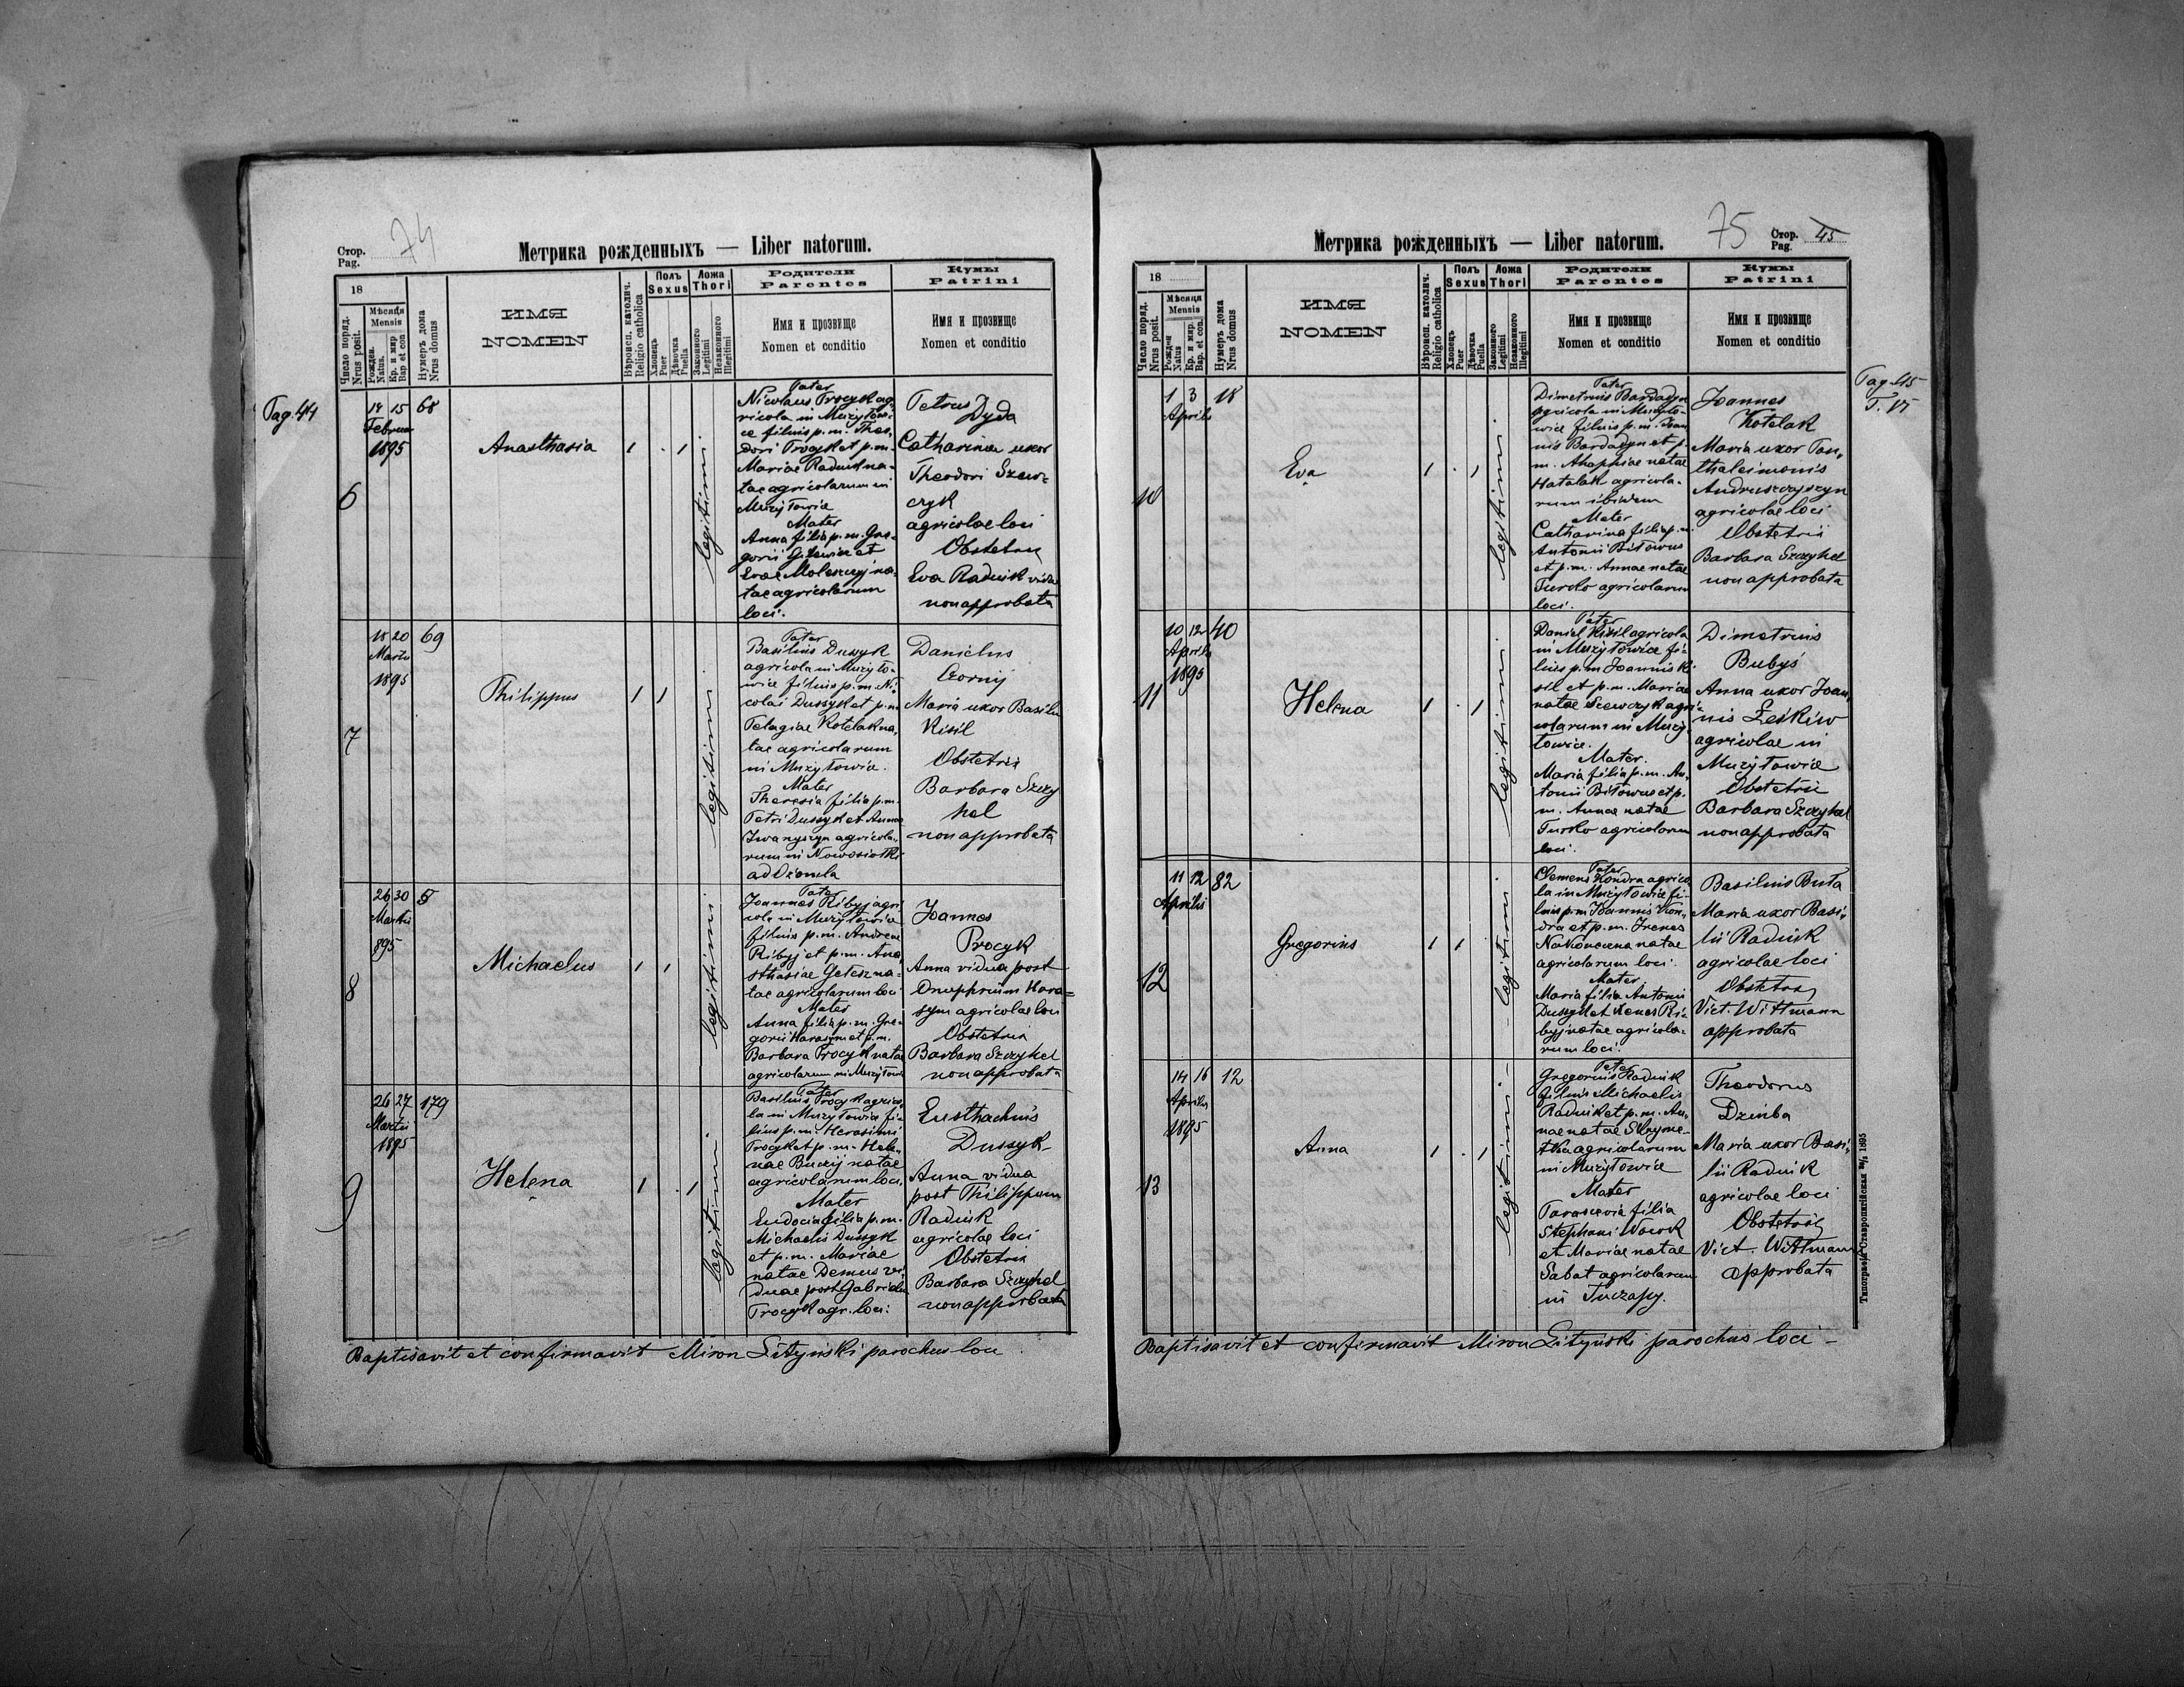 Стор.
Pag.
74
Метрика рожденныхъ — Liber natorum.
18
Число поряд.
Nrus posit.
Мѣсяца
Mensis
Рожден.
Natus.
Кр. и мир
Bap et con
Нумеръ дома
Nrus domus
ИМЯ
NOMEN
Вѣроисп. католич.
Religio catholica
Полъ
Sexus
Хлопець
Puer
Дѣвочка
Puella
Ложа
Thori
Законного
Legitimi
Незаконного
Illegitimi
Родители
Parentes
Имя и прозвище
Nomen et conditio
Кумы
Patrini
Имя и прозвище
Nomen et conditio
Pag. 44
6
14 15 68
Februar
1895
Anasthasia
legitimi
Pater
Nicolaus Procyk ag-
ricola in Mużyłowi-
ce filius p.m. Theo-
dori Procyk et p.m.
Mariae Radnik na-
tae agricolarum in
Mużyłowice
Mater
Anna filia p.m. Gre-
gorii Gilewicz et
Evae Moleszczij na-
tae agricolarum
loci.
Petrus
Dyda
Catharina uxor
Theodori Szew-
czyk
agricolae loci
Obstetrix
Eva Radnik vidua
non approbata
7
18 20 69
Martii
1895
Philippus
legitimi
Pater
Basilius Dussyk
agricola in Mużyło-
wice filius p.m. Ni-
colai Dussyk et p.m.
Pelagiae Kotelak na-
tae agricolarum
in Mużyłowice.
Mater
Theresia filia p.m.
Petri Dussyk et Annae
Iwanyszyn agricola-
rum in Nowosiołki
ad
Danielus
Czornij
Maria uxor Basilii
Kisil
Obstetrix
Barbara Szczy
hel
non approbata
8
26 30 5
Martii
895
Michaelus
legitimi
Pater
Joannes Ribyj agri
cola in Mużyłowice
filius p.m. Andreae
Ribyj et p.m. Ana-
sthasiae Getesz na-
tae agricolarum loci
Mater
Anna filia p.m. Gre-
gorii Harasym et p.m.
Barbara Procyk natae
agricolarum in Mużyłowice
Joannes
Procyk
Anna vidua post
Onuphrium Hara=
sym agricolae loci
Obstetrix
Barbara Szczyhel
non approbata
9
26 27 179
Martii
1895
Helena
legitimi
Pater
Basilius Procyk agrico-
la in Mużyłowice fi-
lius p.m. Herasimi
Procyk et p.m. Hele-
nae Buczij natae
agricolarum loci.
Mater
Eudocia filia p.m.
Michaelis Dussyk
et p.m. Mariae
natae Demus vi-
duae post Gabrielem
Procyk agr. loci.
Eusthachius
Dussyk
Anna vidua
post Philippum
Radnik
agricolae loci
Obstetrix
Barbara Szczyhel
non approbata
Baptisavit et confirmavit Miron Lityński parochus loci
Метрика рожденныхъ — Liber natorum.
75
Стор.
Pag.
45
18
Число поряд.
Nrus posit.
Мѣсяца
Mensis
Рожден
Natus
Кр. и мир.
Bap. et con.
Нумеръ дома
Nrus domus
ИМЯ
NOMEN
Вѣроисп. католич.
Religio catholica
Полъ
Sexus
Хлопець
Puer
Дѣвочка
Puella
Ложа
Thori
Законного
Legitimi
Незаконного
Illegitimi
Родители
Parentes
Имя и прозвище
Nomen et conditio
Кумы
Patrini
Имя и прозвище
Nomen et conditio
Pag. 45
T. VI
10
1 3 18
Aprilis
Eva
legitimi
Pater
Dimetrius Bardadyn
agricola in Mużyło-
wice filius p.m. Joan
nis Bardadyn et p.
m. Ahaphiae natae
Hatalak agricola-
rum ibidem
Mater
Catharina filia p.m.
Antonii Biłowus
et p.m. Annae natae
Turko agricolarum
loci.
Joannes
Kotelak
Maria uxor Pan-
thaleimonis
Andruszczyszyn
agricolae loci
Obstetrix
Barbara Szczyhel
non approbata
11
10 12 40
Aprilis
1895
Helena
legitimi
Pater
Daniel Kisil agricola
in Mużyłowice fi-
lius p.m Joannis Ki
sil et p.m. Mariae
natae Szewczyk agri-
colarum in Muży
łowice.
Mater.
Maria filia p.m. An-
tonii Biłowus et p.
m. Annae natae
Turko agricolarum
loci.
Dimetrius
Bubyś
Anna uxor Joan-
nis Leśkiw
agricolae in
Mużyłowice
Obstetrix
Barbara Szczyhel
non approbata
12
11 12 82
Aprilis
Gregorius
legitimi
Pater
Clemens Kondra agrico-
la in Mużyłowice fi-
lius p.m Joannis Kon-
dra et p.m. Irenes
Nakoneczna natae
agricolarum loci.
Mater
Maria filia Antonii
Dussyk et Xenes Ri-
byj natae agricola-
rum loci.
Basilius Buta
Maria uxor Basi-
lii Radnik
agricolae loci
Obstetrix
Vict. Wittmann
approbata
13
14 16 12
Aprilis
1895
Anna
legitimi
Pater
Gregorius Radnik
filius Michaelis
Radnik et p.m. An-
nae natae
agricolarum
in Mużyłowice
Mater
Parascevia filia
Stephani Wowk
et Mariae natae
Sabat agricolarum
in Tuczapy.
Theodorus
Dziuba
Maria uxor Basi-
lii Radnik
agricolae loci
Obstetrix
Vict. Wittmann
approbata
Типографія Ставропигійская 1895
Baptisavit et confirmavit Miron Lityński parochus loci -